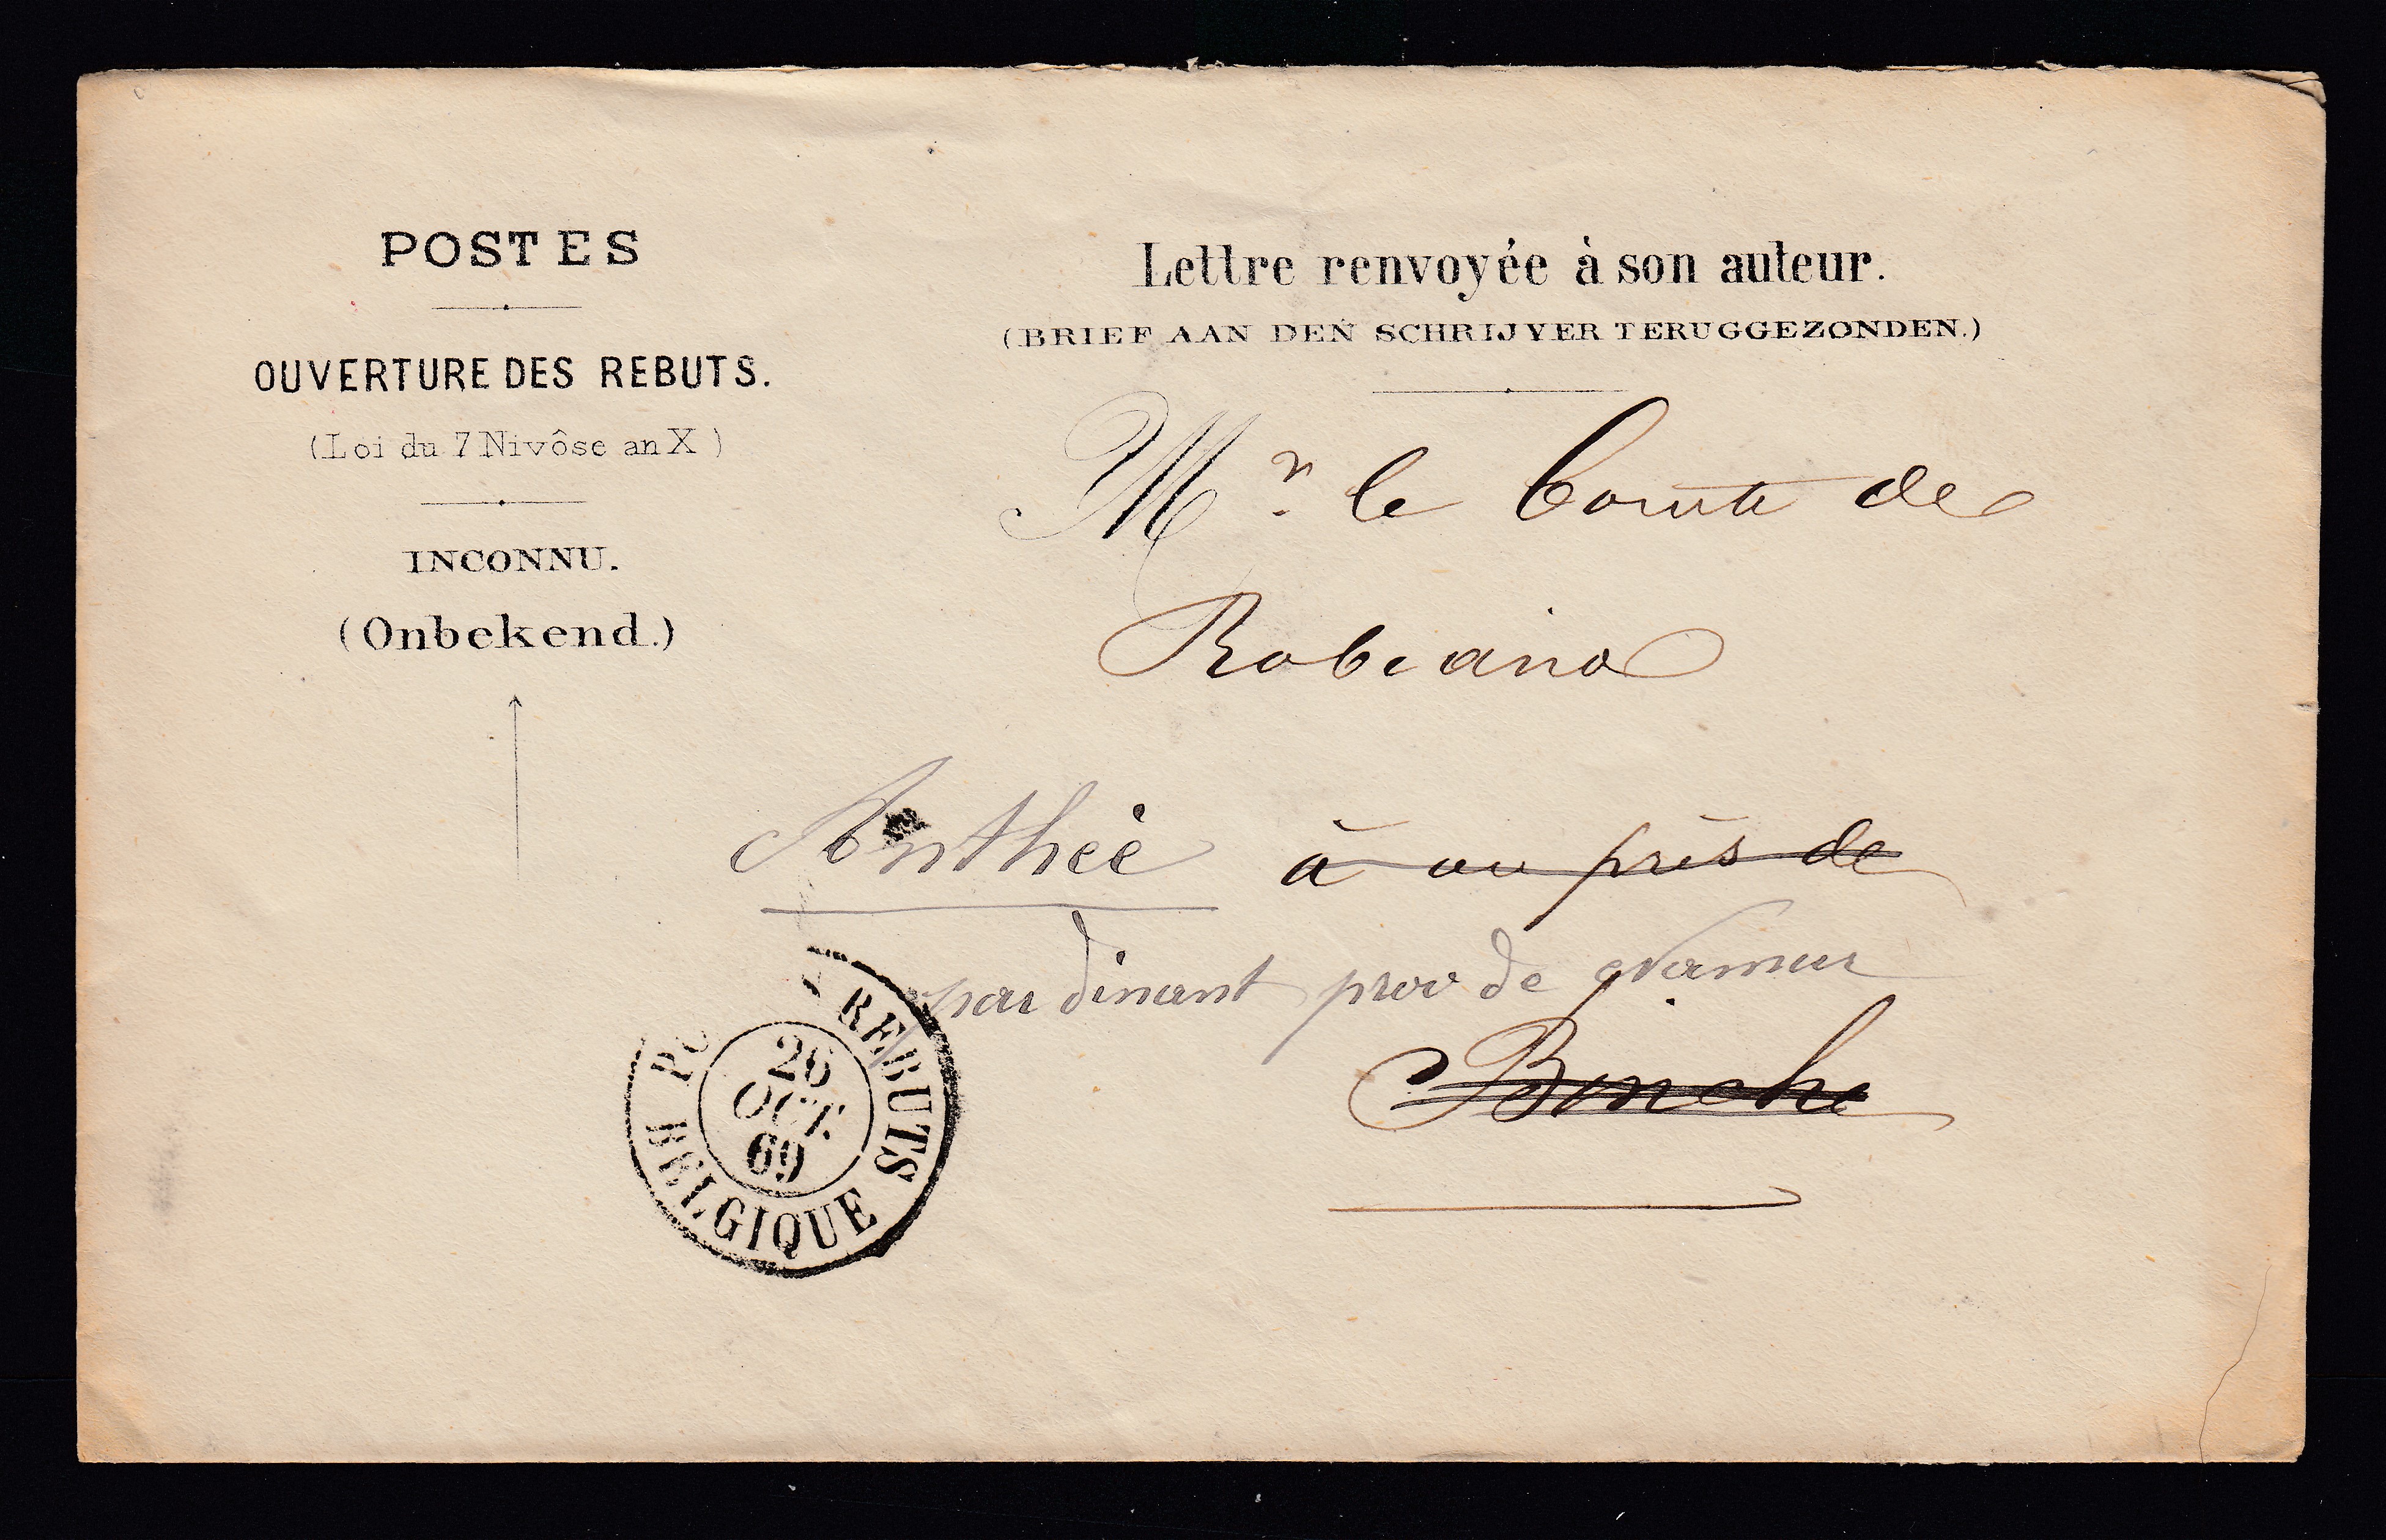 POSTES
OUVERTURE DES REBUTS.
(Loi du 7 Nivôse an X)
INCONNU.
(Onbekend.)
Lettre renvoyée à son auteur.
(BRIEF AAN DEN SCHRIJVER TERUGGEZONDEN.)
Mr. le Comte de
Robiano
Anthée à ou près de
par dinant prov de Namur
Binche
REBUTS
26
OCT.
69
BELGIQUE